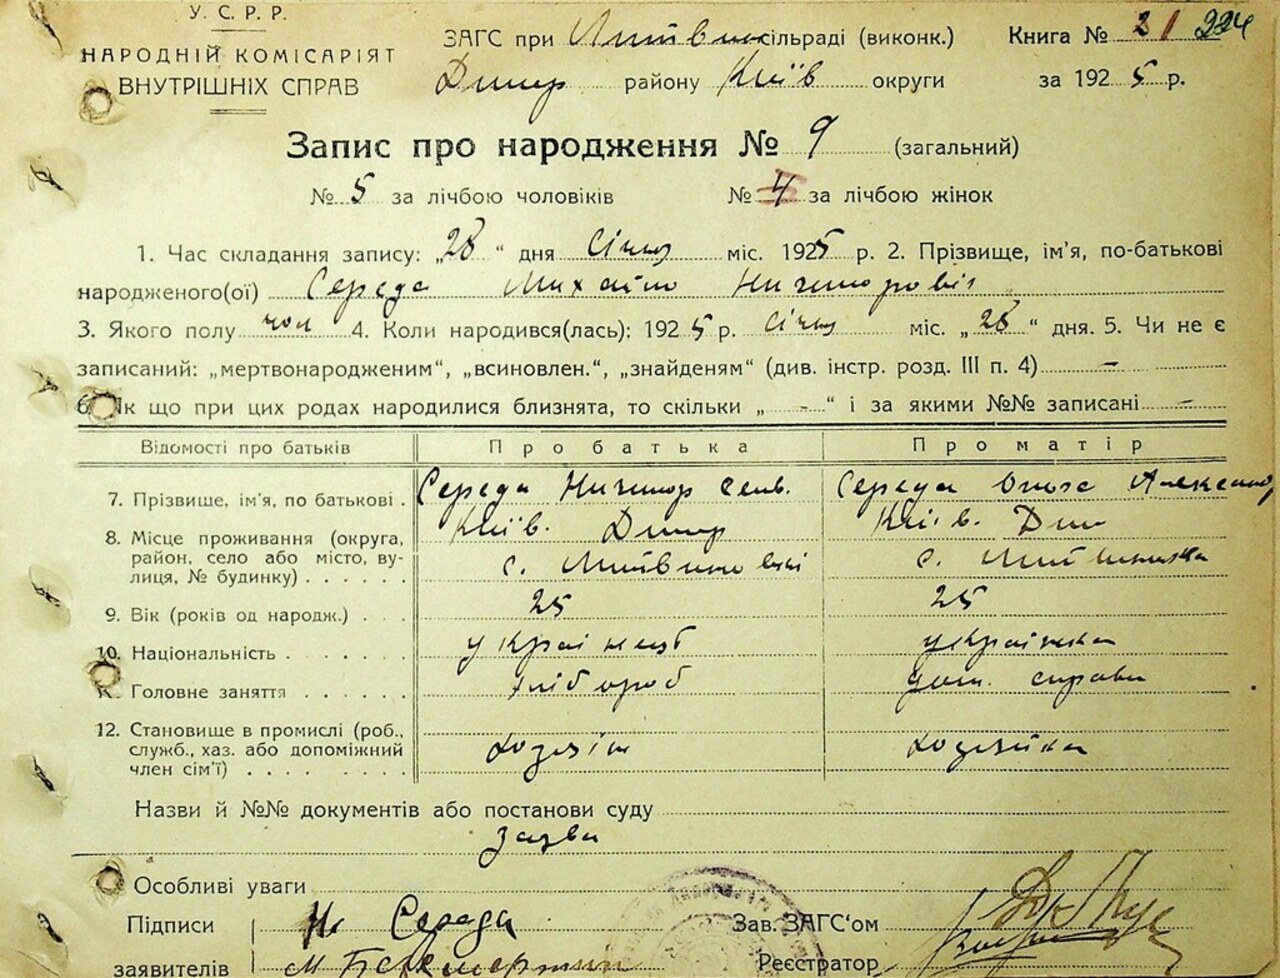 У. С. Р. Р.
НАРОДНІЙ КОМІСАРІЯТ
ВНУТРІШНІХ СПРАВ
ЗАГС при Литвин сільраді (виконк.)
Димер району Київ округи
Книга № 21 224
за 1925 р.
Запис про народження № 9 (загальний)
№ 5 за лічбою чоловіків № 4 за лічбою жінок
1. Час складання запису: „28“ дня Січня міс. 1925 р. 2. Прізвище, ім'я, по-батькові
народженого(ої) Середа Михайло Ничипорович
3. Якого полу чол 4. Коли народився(лась): 1925 р. Січня міс. „28“ дня. 5. Чи не є
записаний: „мертвонародженим“, „всиновлен.“, „знайденям“ (див. інстр. розд. III п. 4) —
6. Як що при цих родах народилися близнята, то скільки „ — “ і за якими №№ записані —
Відомості про батьків Про батька Про матір
7. Прізвище, ім'я, по батькові . Середа Ничипор Середа Ольга Александ
8. Місце проживання (округа, Київ. Димер Київ. Дим
район, село або місто, ву- с. Литвиновки с.
лиця, № будинку) . . . . . .
9. Вік (років од народж.) . . . 25 25
10. Національність . . . . . . українець українка
Головне заняття . . . . . . хлібороб дом. справи
12. Становище в промислі (роб.,
служб., хаз. або допоміжний хозяїн хозяйка
член сім'ї) . . . . . . . .
Назви й №№ документів або постанови суду
заява
Особливі уваги
Підписи Н Середа Зав. ЗАГС'ом
заявителів М Реєстратор